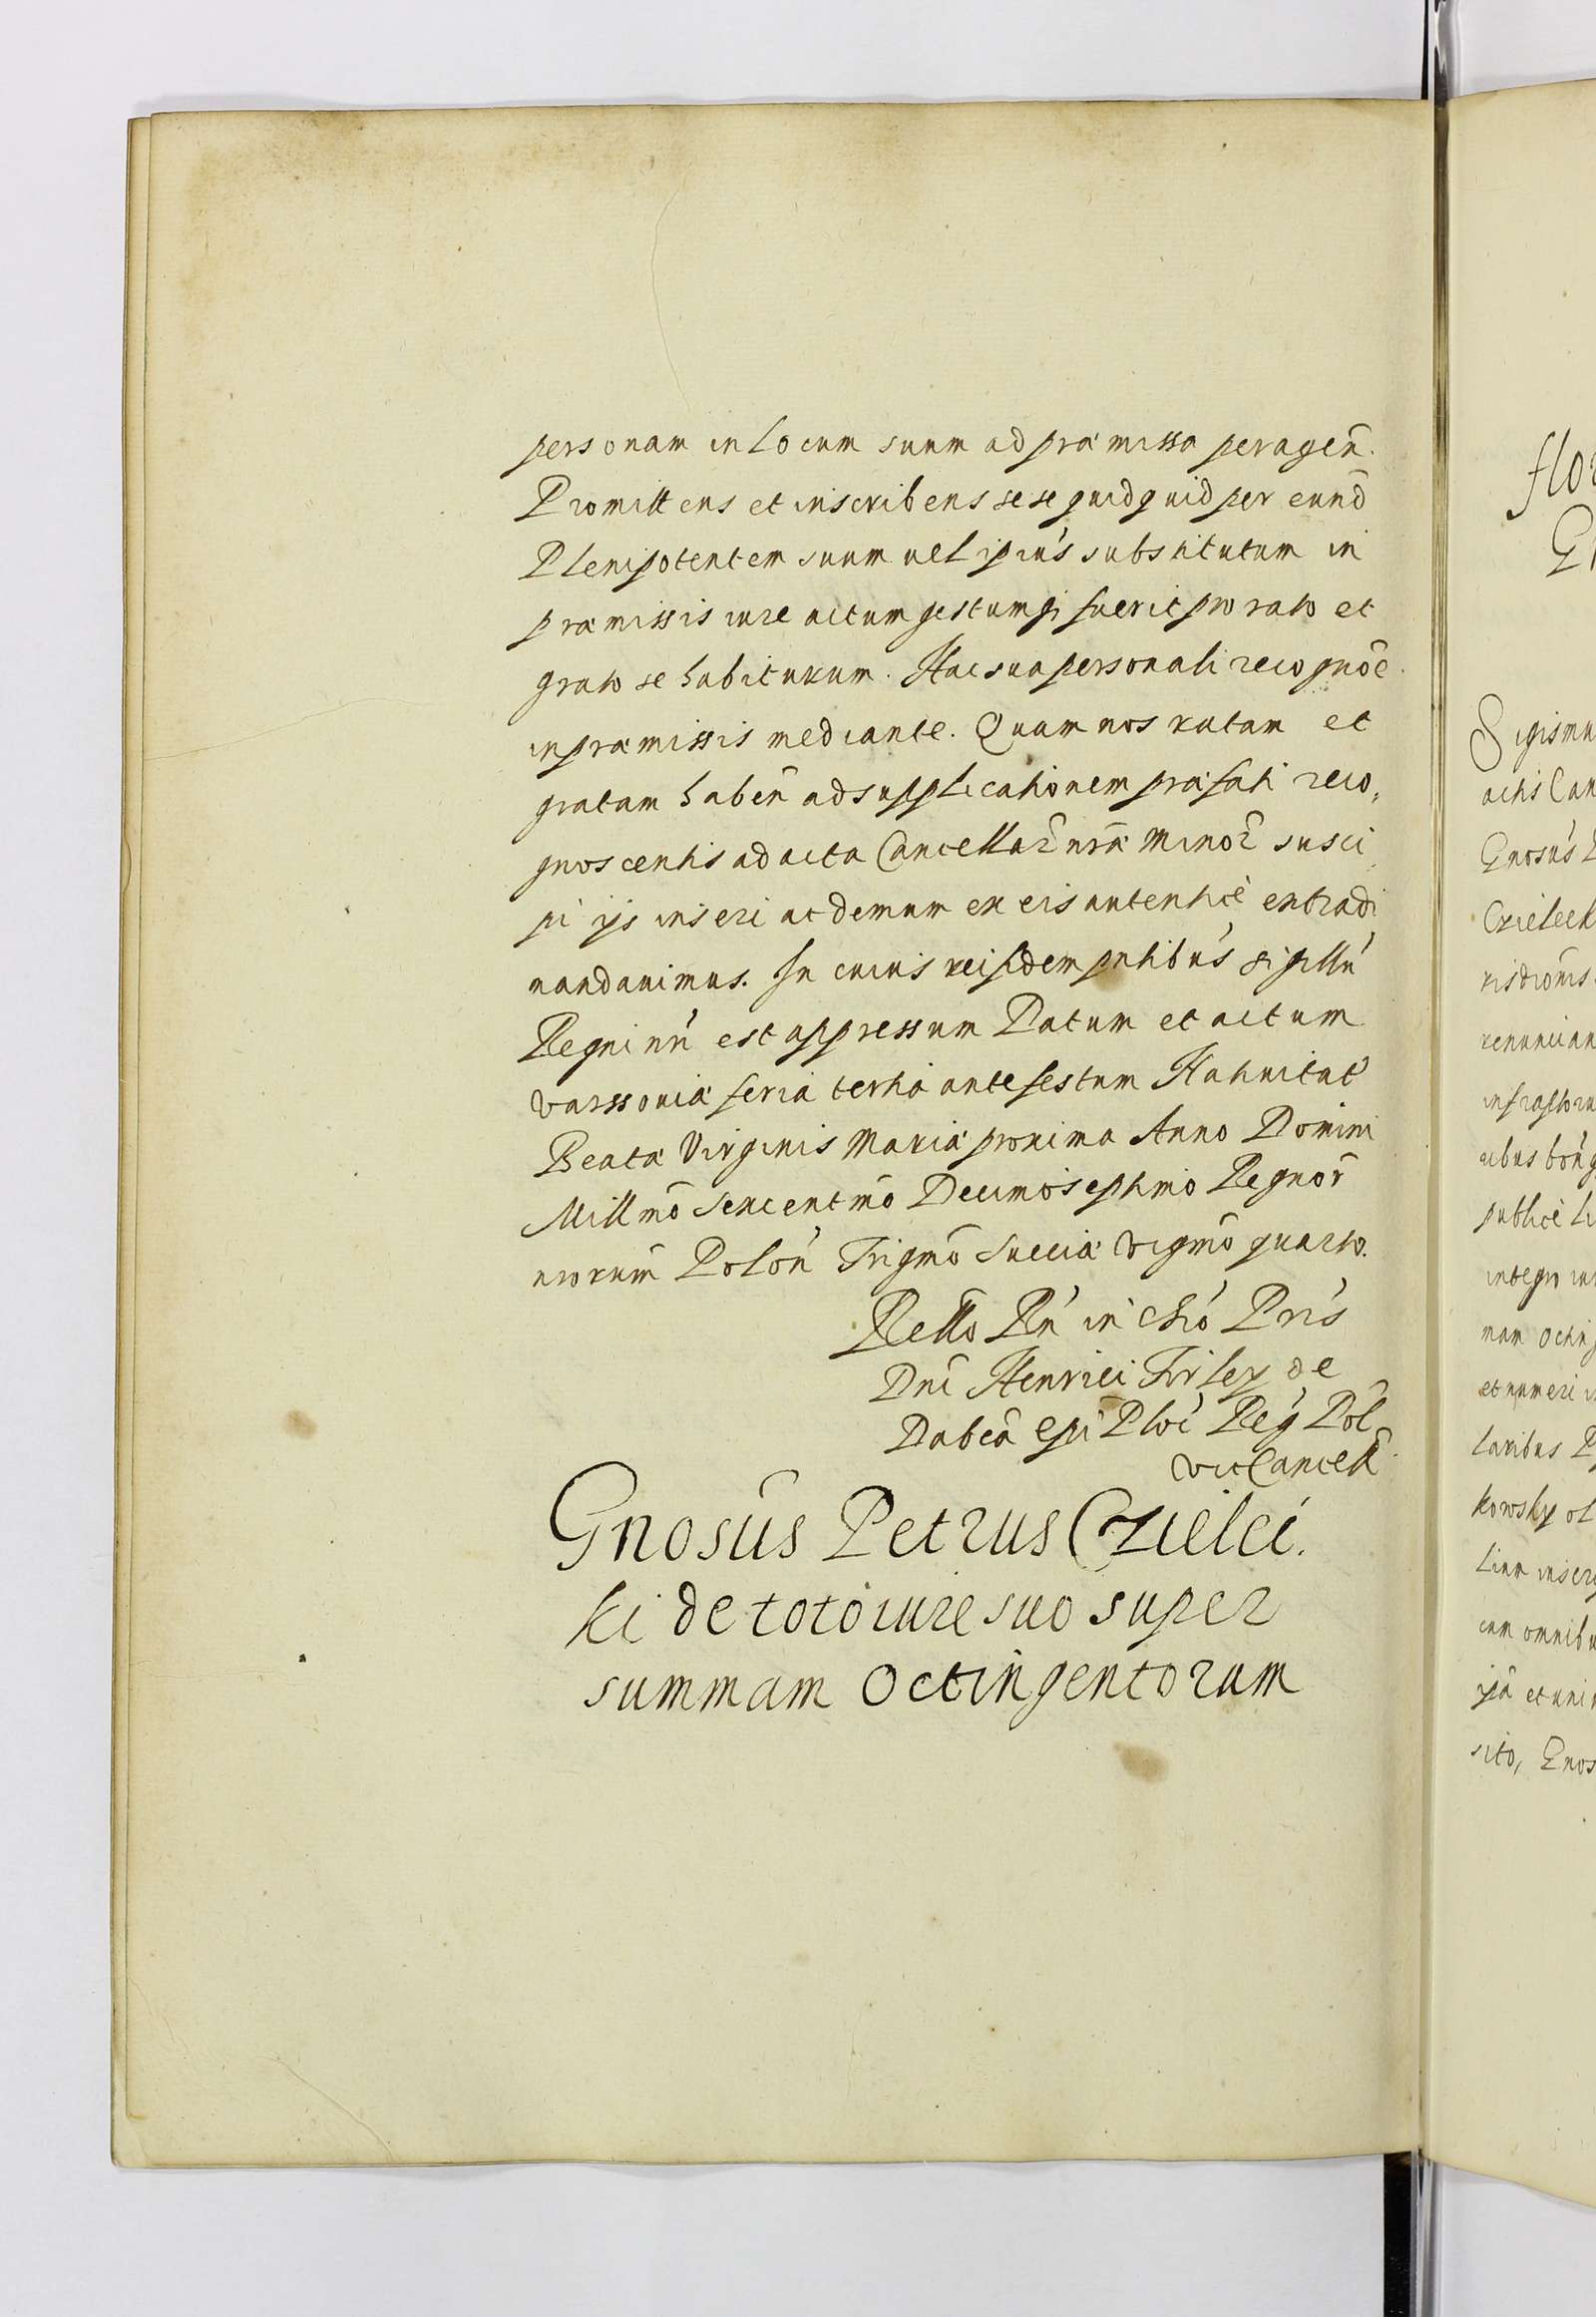 personam in locum suum ad præmissa peragen̄.
Promittens et inscribens sese quidquid per eund̄
Plenipotentem suum vel ipius substitutum in
præmissis iure actum gestumq; fuerit pro rato et
grato se habiturum. Hac sua personali recognoē
in præmissis mediante. Quam nos ratam et
gratam haben̄ ad supplicationem præfati reco,
gnoscentis ad acta Cancellar̄ nr̄æ Minor̄ susci
pi ijs inseri ac demum ex eis autenticè extradi
mandauimus. In cuius rei fidem pntibus sigillū
Regni nrī est appressum Datum et actum
Varssouiæ feria tertia ante festum Natiuitat̄
Beatæ Virginis Mariæ proxima Anno Domini
Millmō Sexcentmō Decimoseptimo Regnor̄
nrorum̄ Polon̄ Trigmō Sueciæ vigmō quarto.
Rello Rn̄ in Chō Pris
Dnī Henrici Firley de
Dabrō Epī Ploc̄ Reg̃ Pol̄
Vicecancell̄
Gnosūs Petrus Czielec.
ki de toto iure suo super
summam octingentorum
flor
G
Sigismu
actis Can
Gnosus
Czieleck
risdiōnis
renuncian
infrascto
ibus bon̄
publicè li
integro iu
mam octing
et numeri
laribus P
kowsky ol
linm inscri
cum omnibu
ipā et uni
sito, Gnos